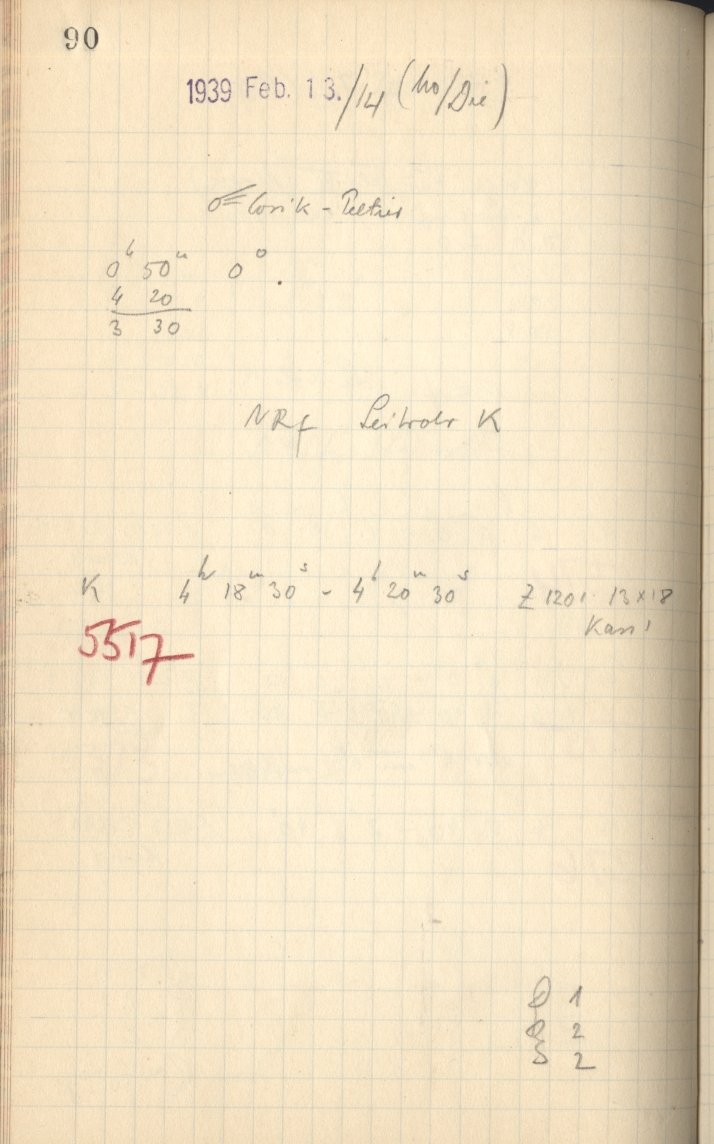 90
1939 Feb. 13./14 (Mo/Die)
☄ Cosik - Peltier
0ʰ 50ᵐ 0°.
4 20
3 30
NRf Leitrohr K
K 4ʰ 18ᵐ 30ˢ - 4ʰ 20ᵐ 30ˢ Z 1201 13x18
Kass!
5517
1
2
2